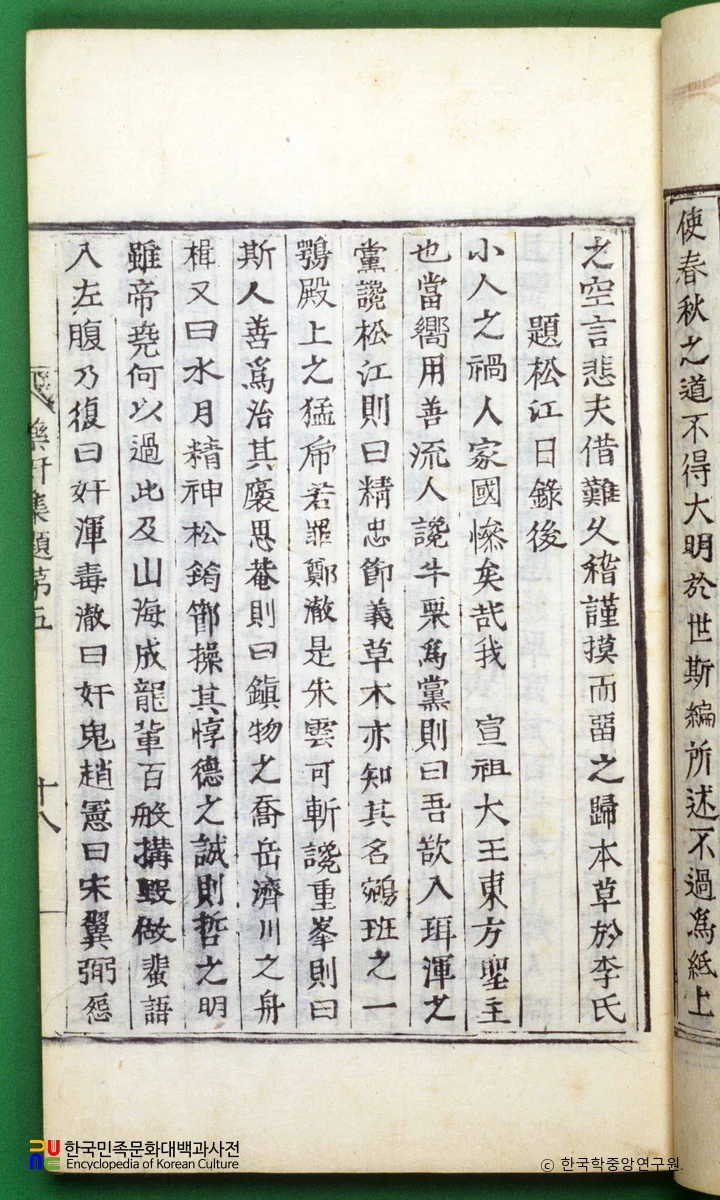 使春秋之道不得大明於世斯編所述不過爲紙上
之空言悲夫借難久稽謹摸而留之歸本草於李氏
題松江日錄後
小人之禍人家國慘矣哉我 宣祖大王東方聖主
也當嚮用善流人讒牛栗爲黨則曰吾欲入珥渾之
黨讒松江則曰精忠節義草木亦知其名鵷班之一
鶚殿上之猛虎若罪鄭澈是朱雲可斬讒重峯則曰
斯人善爲治其褒思菴則曰鎭物之喬岳濟川之舟
楫又曰水月精神松筠節操其惇德之誠則哲之明
雖帝堯何以過此及山海成龍輩百般搆毁做蜚語
入左腹乃復曰奸渾毒澈曰奸鬼趙憲曰宋翼弼怨
集題第五
十八
한국민족문화대백과사전
Encyclopedia of Korean Culture
ⓒ 한국학중앙연구원